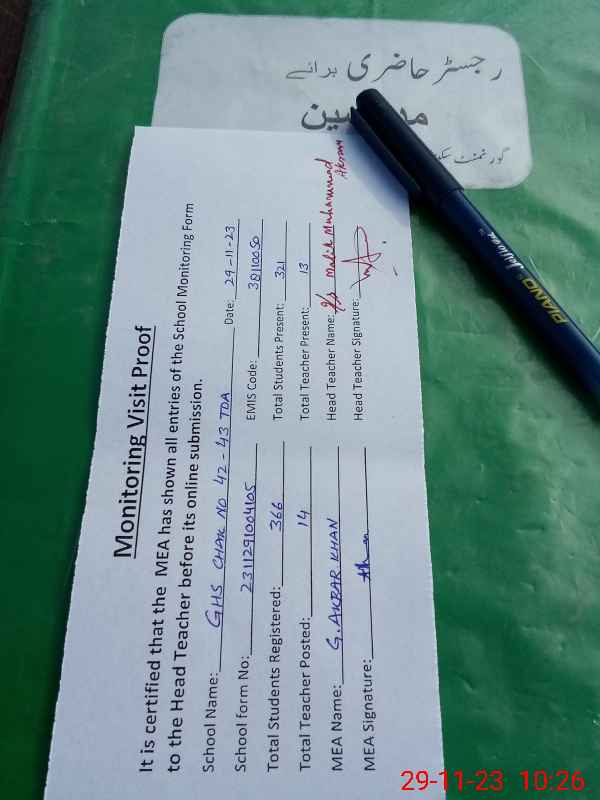 رجسٹر حاضری برائے
گورنمنٹ
Monitoring Visit Proof
It is certified that the MEA has shown all entries of the School Monitoring Form
to the Head Teacher before its online submission.
School Name: GHS CHAK NO 42-43 TDA Date: 29-11-23
School form No: 2311291004105 EMIS Code: 38110050
Total Students Registered: 366 Total Students Present: 321
Total Teacher Posted: 14 Total Teacher Present: 13
MEA Name: G. AKBAR KHAN Head Teacher Name: Malik Muhammad Akram
MEA Signature: Head Teacher Signature:
PIANO
29-11-23 10:26